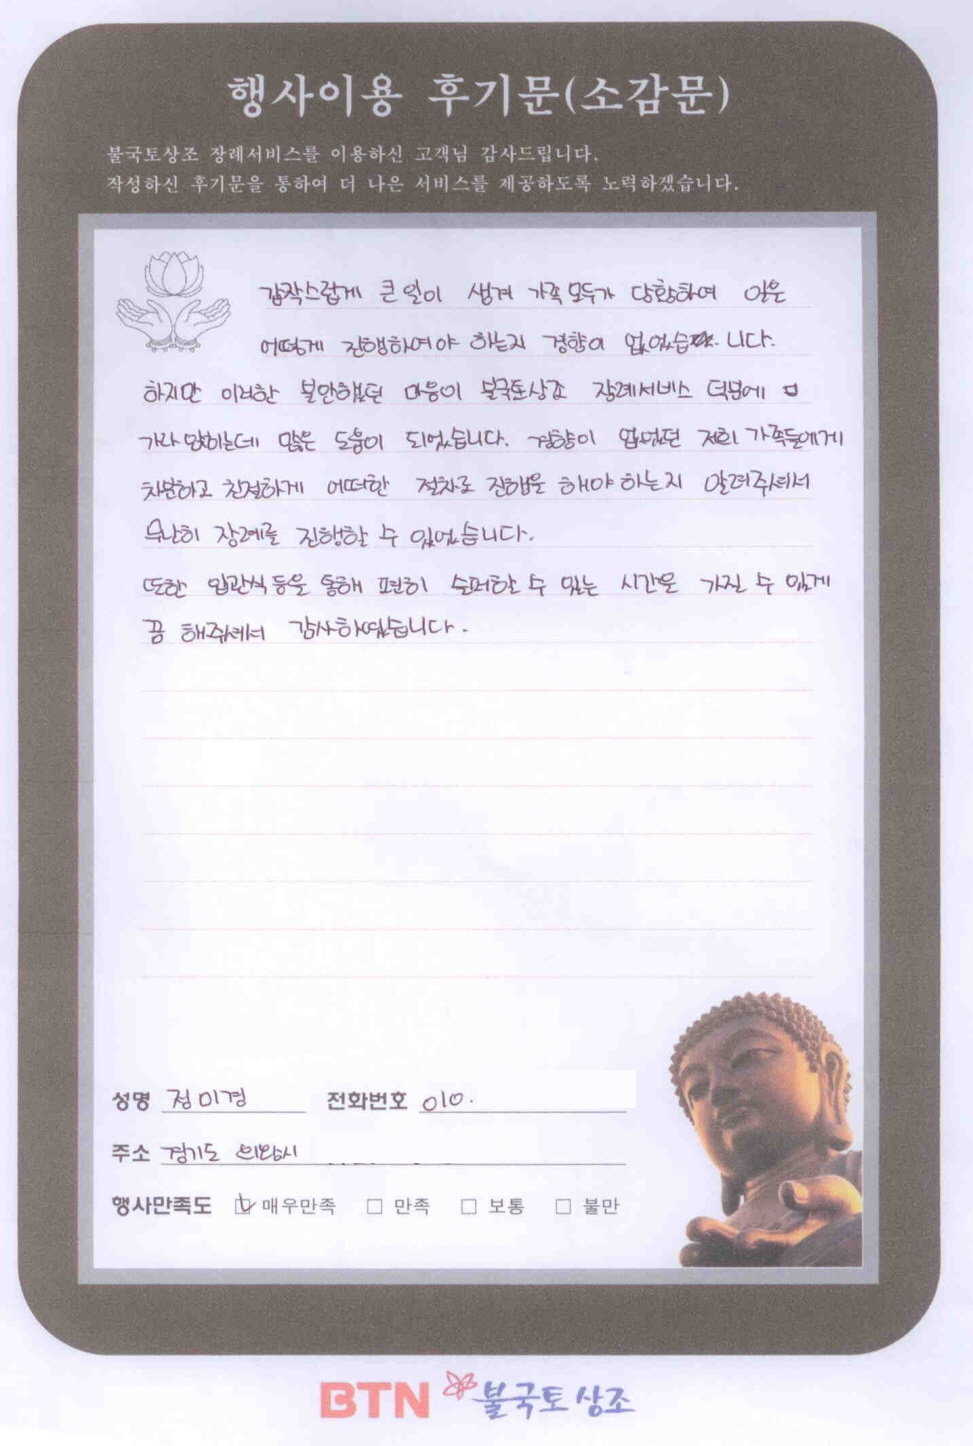 행사이용 후기문(소감문)
불국토상조 장례서비스를 이용하신 고객님 감사드립니다.
작성하신 후기문을 통하여 더 나은 서비스를 제공하도록 노력하겠습니다.
갑작스럽게 큰일이 생겨 가족모두가 당황하여 일은
어떻게 진행하여야 하는지 경향이 없었습니다.
하지만 이러한 불안했던 마음이 불국토상조 장례서비스 덕분에
가라앉히는데 많은 도움이 되었습니다. 경향이 없었던 저희 가족들에게
차분하고 친절하게 어떠한 절차로 진행을 해야 하는지 알려주셔서
무난히 장례를 진행할 수 있었습니다.
또한 입관식 등을 통해 편히 슬퍼할 수 있는 시간을 가질 수 있게
끔 해주셔서 감사하였습니다.
성명 정미경 전화번호 010.
주소 경기도 의왕시
행사만족도 ☑ 매우만족 □ 만족 □ 보통 □ 불만
BTN 불국토상조